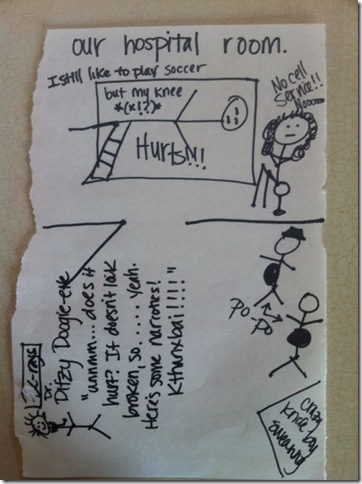 our hospital room.
I still like to play soccer
but my knee
*(x!?)*
Hurts!!!
No cell
Service!!
Nooooo
x-rays
Dr.
Ditzy Doogie-eve
"ummm... does it
hurt? It doesn't look
broken, so..... yeah.
Here's some narcotics!
Kthanxbai!!!!"
po-
po
crazy
knife boy
sweating